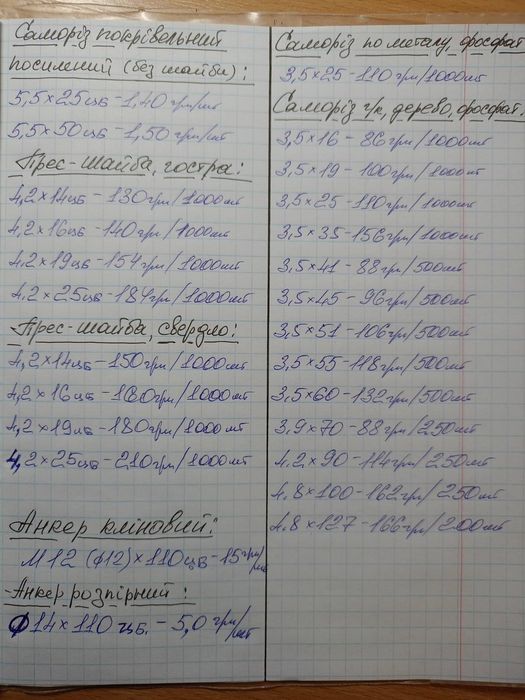 Саморіз покрівельний
посилений (без шайби):
5,5×25цб-1,40грн/шт
5,5×50цб-1,50грн/шт
Прес-шайба, гостра:
4,2×14цб-130грн/1000шт
4,2×16цб-140грн/1000шт
4,2×19цб-154грн/1000шт
4,2×25цб-184грн/1000шт
Прес-шайба, свердло:
4,2×14цб-150грн/1000шт
4,2×16цб-160грн/1000шт
4,2×19цб-180грн/1000шт
4,2×25цб-210грн/1000шт
Анкер кліновий:
М12 (ф12)×110цб-15грн/шт
Анкер розпірний:
ф14×110цб.-5,0грн/шт
Саморіз по металу, фосфат
3,5×25-110грн/1000шт
Саморіз г/к, дерево, фосфат:
3,5×16-86грн/1000шт
3,5×19-100грн/1000шт
3,5×25-110грн/1000шт
3,5×35-156грн/1000шт
3,5×41-88грн/500шт
3,5×45-96грн/500шт
3,5×51-106грн/500шт
3,5×55-118грн/500шт
3,5×60-132грн/500шт
3,9×70-88грн/250шт
4.2×90-114грн/250шт
4.8×100-162грн/250шт
4.8×127-166грн/200шт